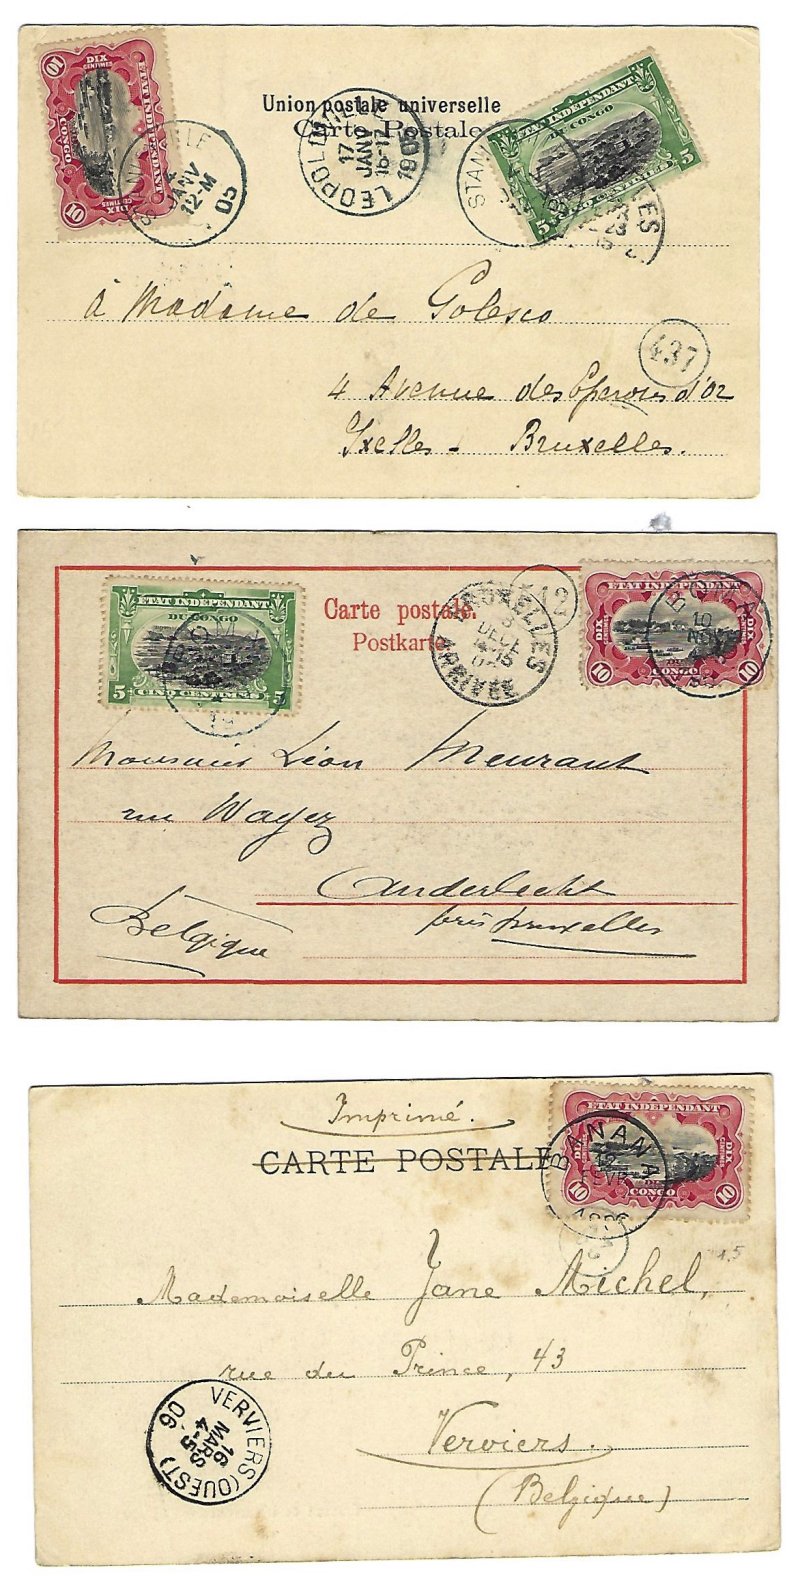 DIX
CENTIMES
10
ETAT INDEPENDANT
DU
CONGO
10
DIX
CENTIMES
4
JANV
12-M
05
Union postale universelle
Carte Postale
LEOPOLDVILLE
17
JANV
16-17
1905
ETAT INDEPENDANT
DU CONGO
5
CINQ CENTIMES
5
à Madame de Golesco
437
4 Avenue des Eperons d'Or
Ixelles - Bruxelles.
ETAT INDEPENDANT
DU CONGO
5
CINQ CENTIMES
5
BOMA
Carte postale.
Postkarte
BRUXELLES
DECE
ARRIVEE
12
ETAT INDEPENDANT
DIX
CENTIMES
DIX
CENTIMES
10
DU
CONGO
10
BOMA
10
NOV
Monsieur Léon Meurant
rue Wayez
Anderlecht
près Bruxelles
Belgique
Imprimé.
CARTE POSTALE
ETAT INDEPENDANT
DIX
CENTIMES
DIX
CENTIMES
10
DU
CONGO
10
BANANA
12
FEVR
1906
Mademoiselle Jane Michel,
rue du Prince, 43
Verviers.
(Belgique)
VERVIERS (OUEST)
16
MARS
4-5
06